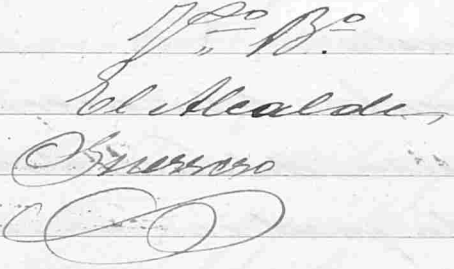 V.º B.º
El Alcalde,
Guerrero